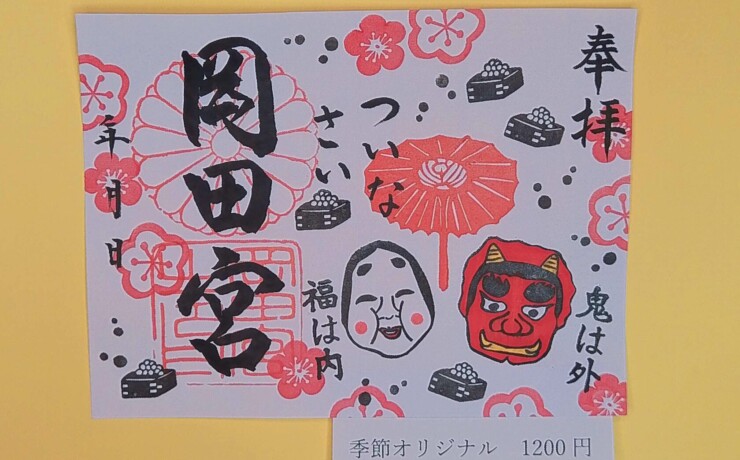 奉拝
ついな
さい
岡田宮
年月日
鬼は外
福は内
季節オリジナル 1200円